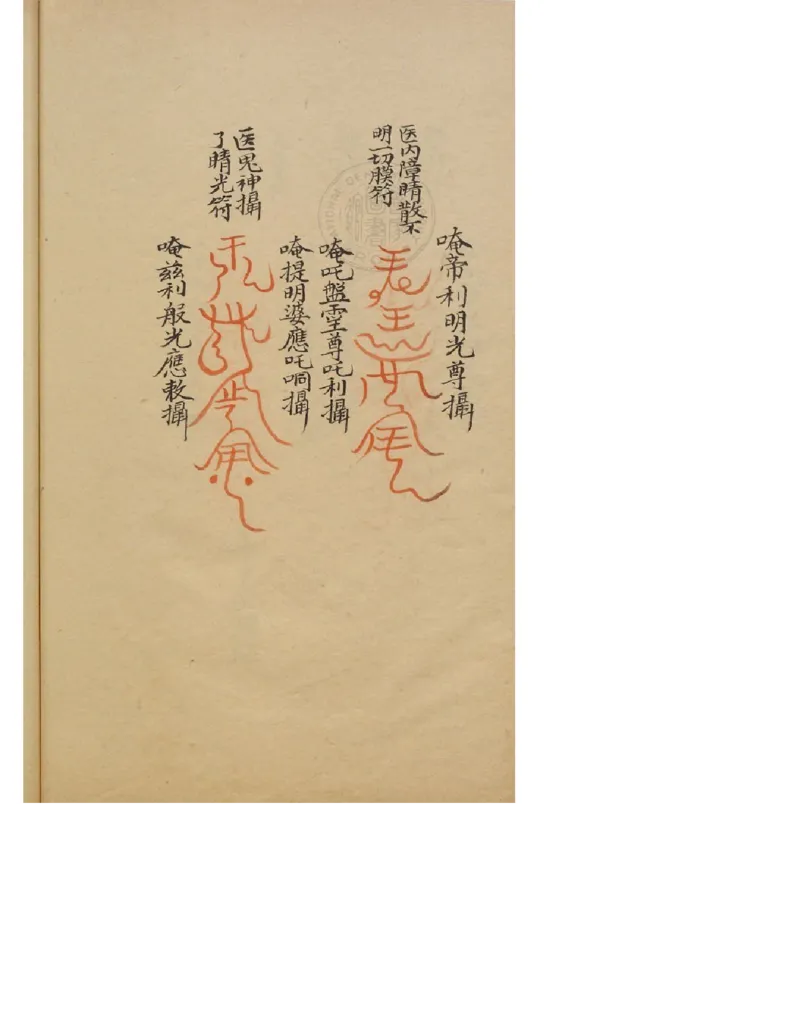 医内障睛散不
明一切膜符
唵帝利明光尊攝
唵吒盤霊尊吒利攝
医鬼神攝
了睛光符
唵提明婆應吒𠱥攝
唵兹利般光應敕攝